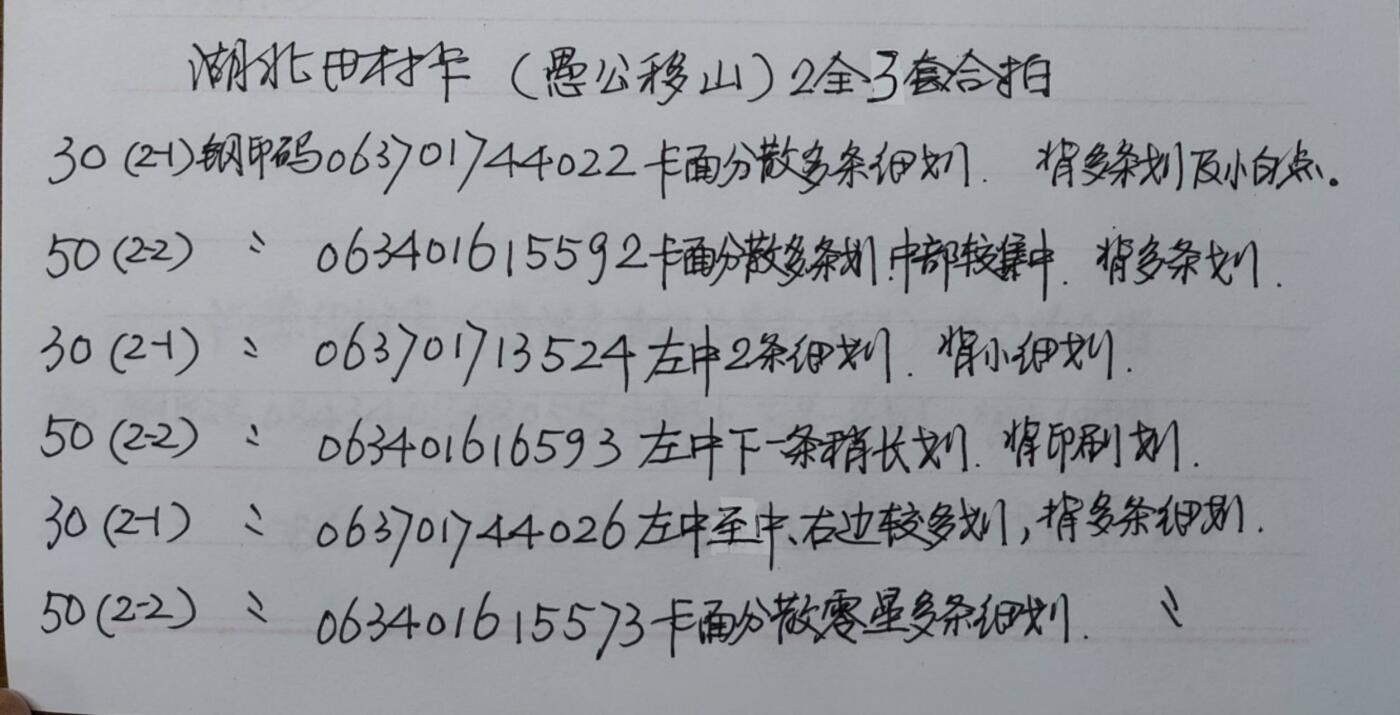 湖北田村卡（愚公移山）2全3套合拍
30(2-1)钢印码063701744022卡面分散多条细划. 背多条划及小白点。
50(2-2) 〃 063401615592卡面分散多条划.中部较集中. 背多条划.
30(2-1) 〃 063701713524左中2条细划. 背小细划.
50(2-2) 〃 063401616593左中下一条稍长划. 背印刷划.
30(2-1) 〃 063701744026左中至中、右边较多划,背多条细划.
50(2-2) 〃 063401615573卡面分散零星多条细划. 〃